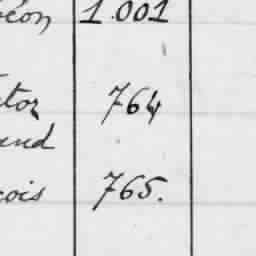 éon 1.001
tor 764
end
cois 765.